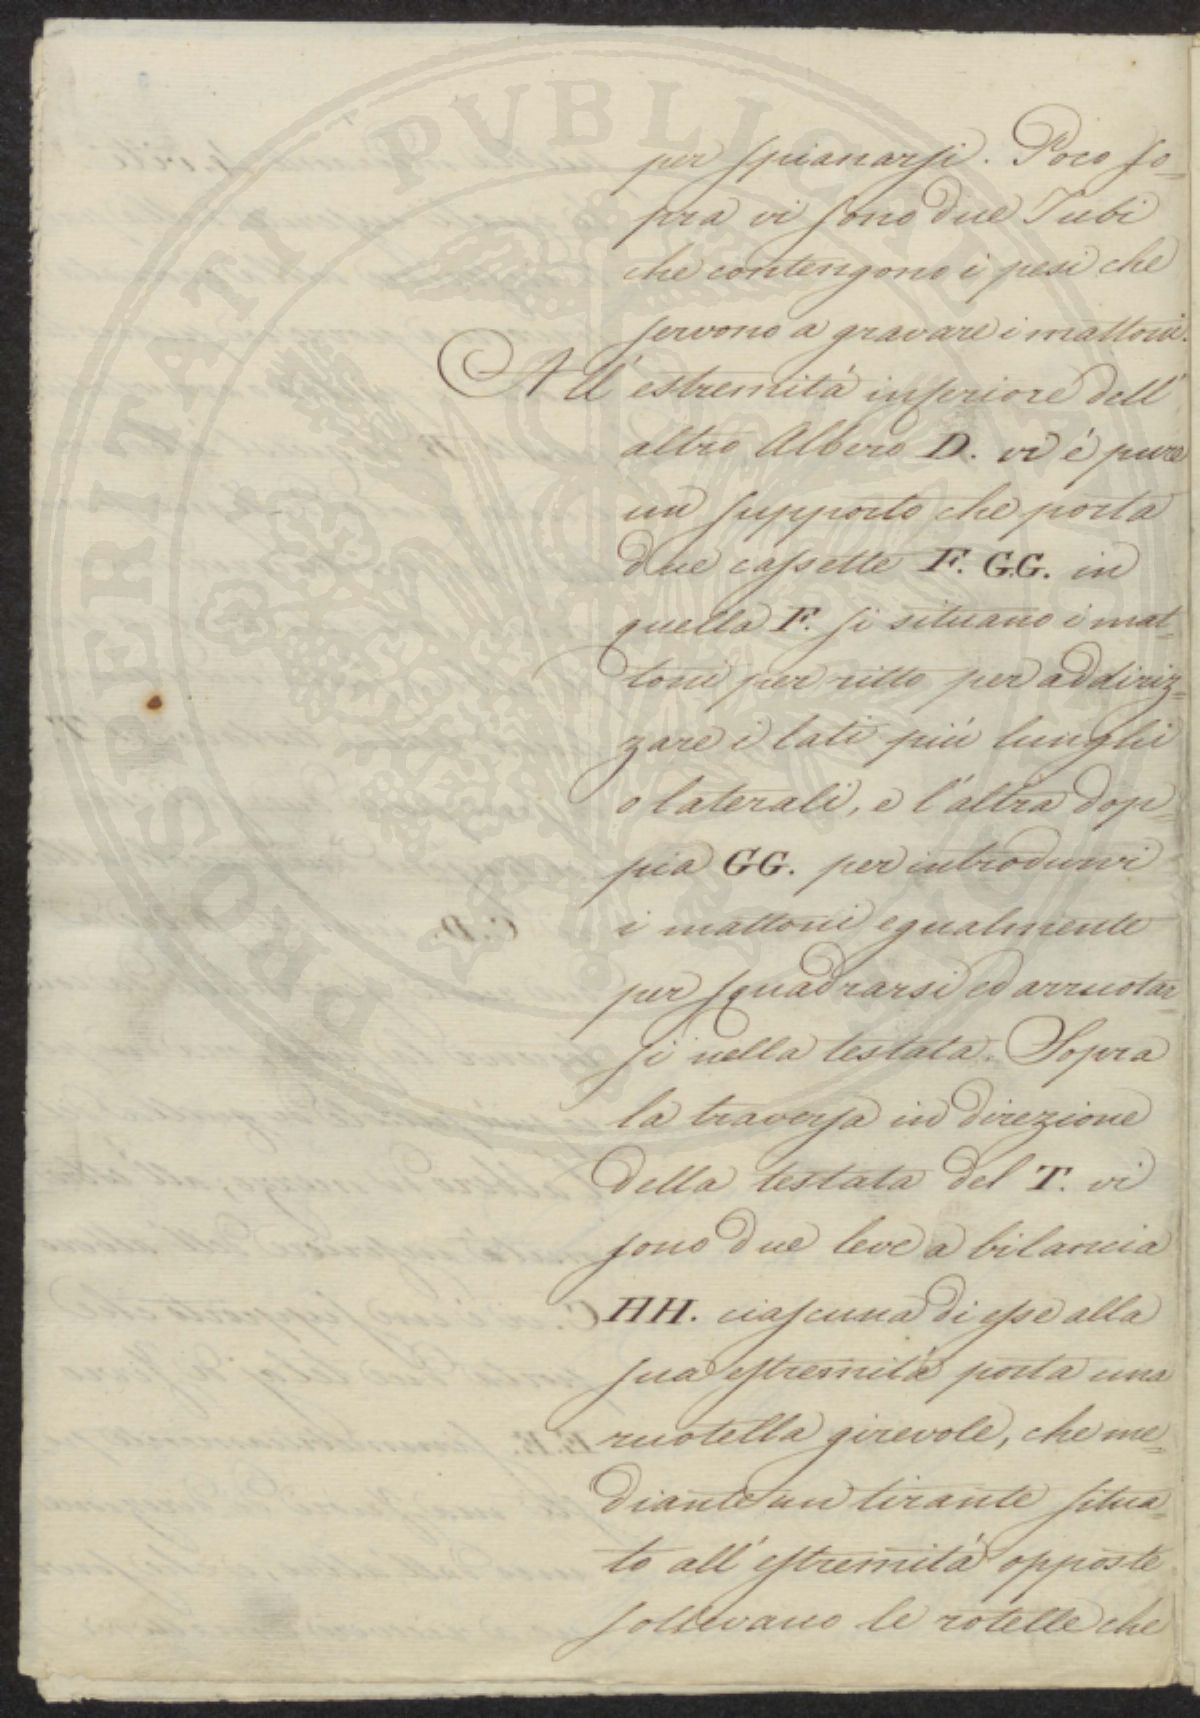 per spianarsi. Poco so=
pra vi sono due Tubi
che contengono i pesi che
servono a gravare i mattoni.
All' estremitá inferiore dell'
altro Albero D. vi é pure
un supporto che porta
due cassette F. G.G. in
quella F. si situano i mat=
toni per ritto per addiriz=
zare i lati piú lunghi
o laterali, e l'altra dop=
pia GG. per introdurvi
i mattoni egualmente
per squadrarsi ed arruotar=
si nella testata. Sopra
la traversa in direzione
della testata del T. vi
sono due leve a bilancia
HH. ciascuna di esse alla
sua estremitá porta una
ruotella girevole, che me=
diante un tirante situa=
to all' estremitá opposte
sollevano le rotelle che
PROSPERITATI PUBLICAE
C. D.